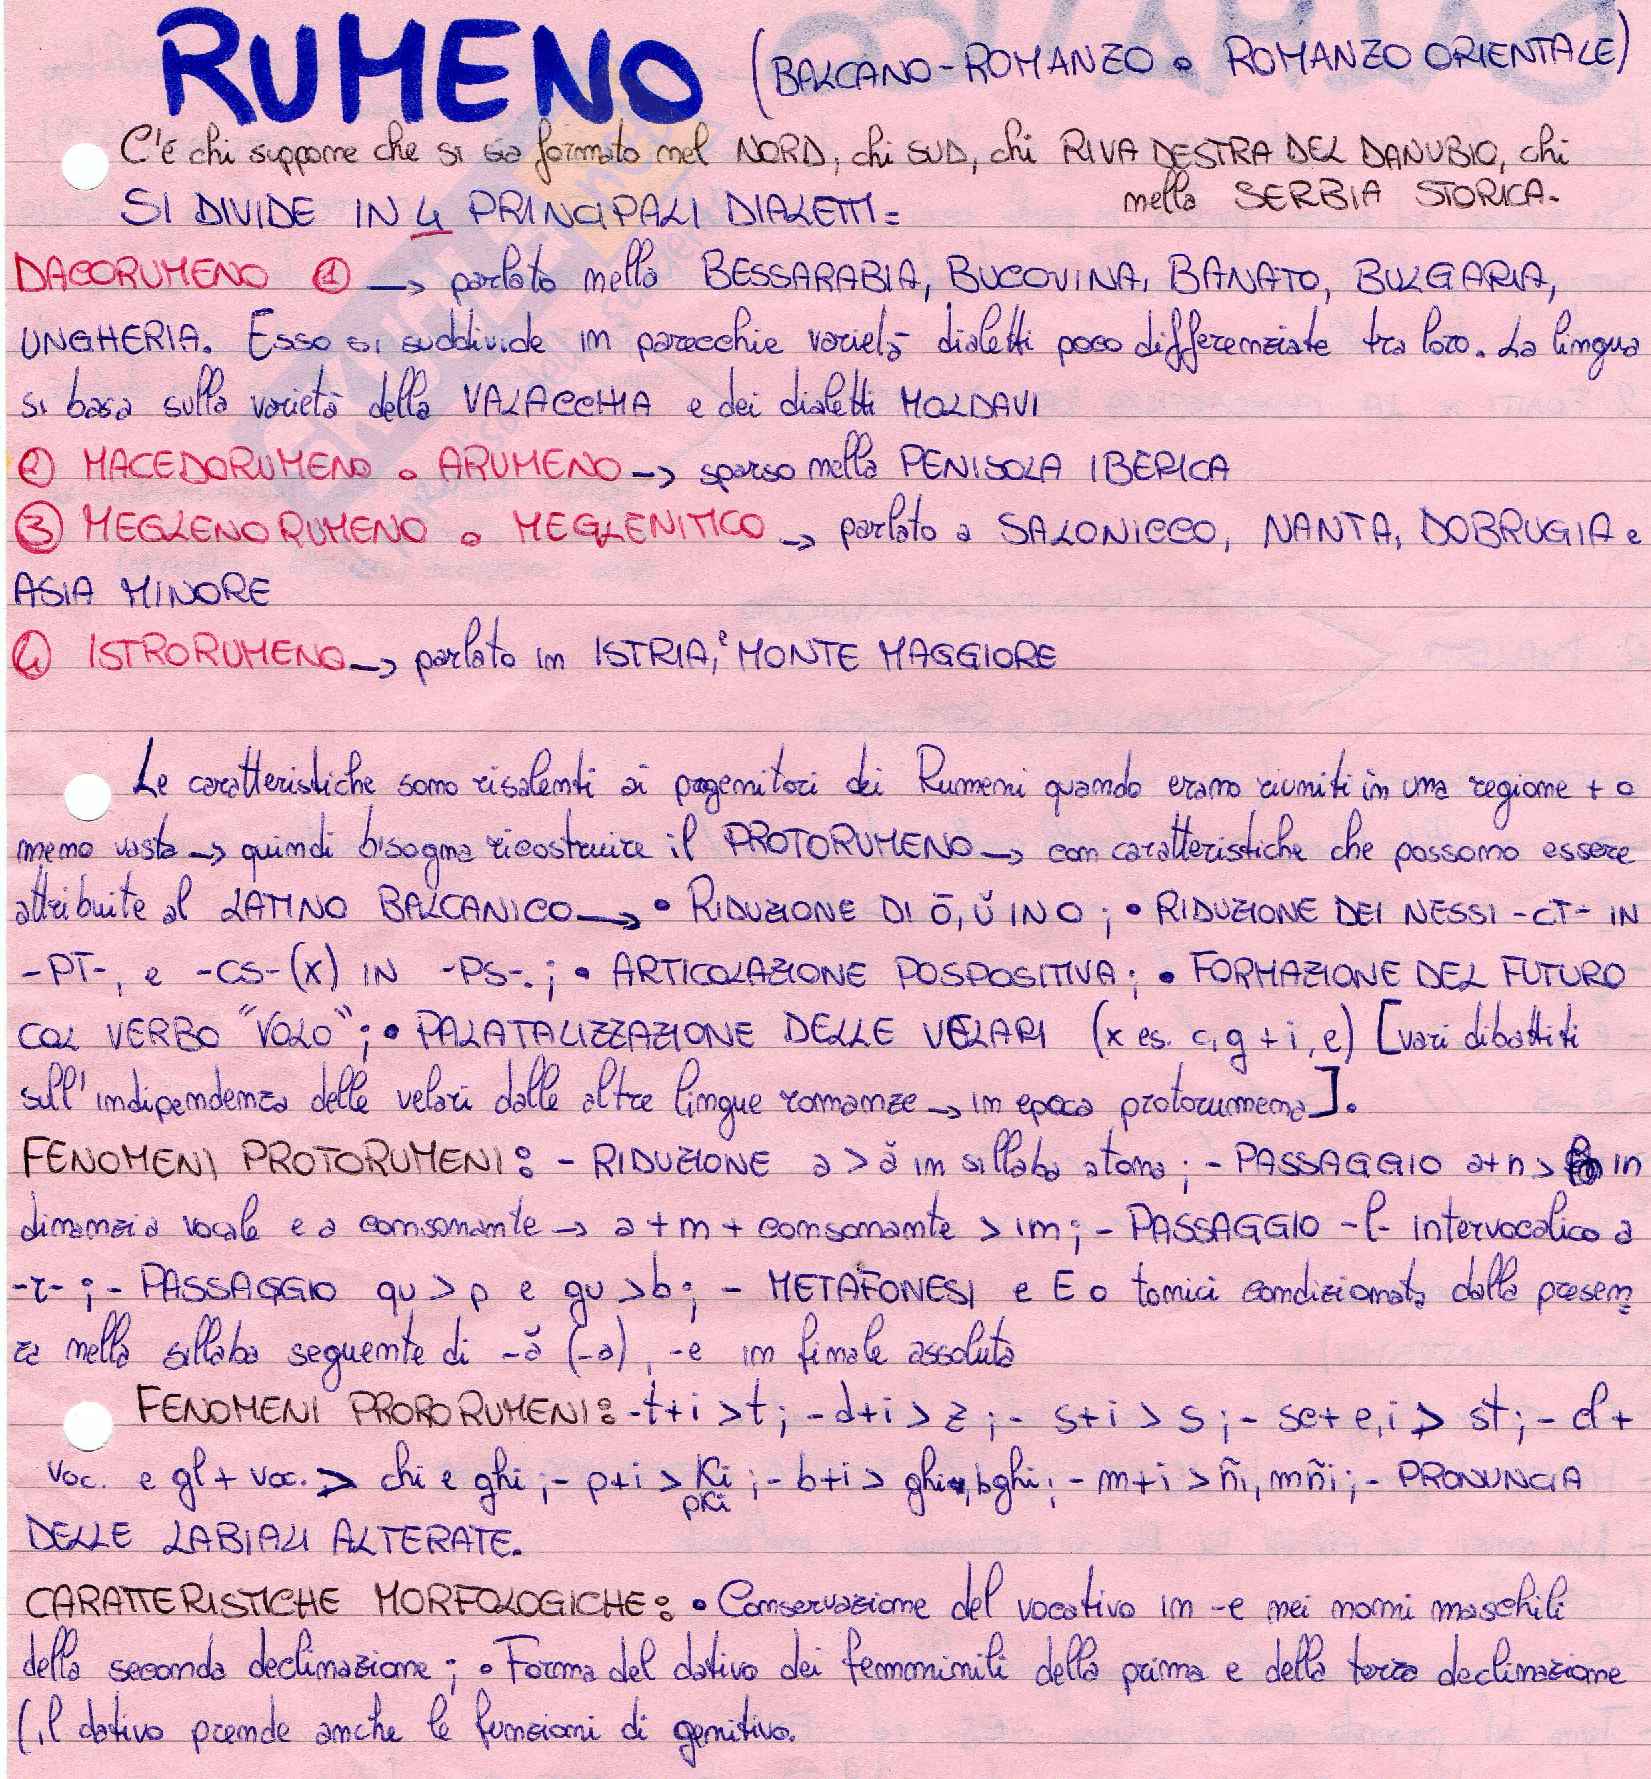 RUMENO (BALCANO-ROMANZO o ROMANZO ORIENTALE)
C'è chi suppone che si sia formato nel NORD, chi SUD, chi RIVA DESTRA DEL DANUBIO, chi
nella SERBIA STORICA.
SI DIVIDE IN 4 PRINCIPALI DIALETTI=
DACORUMENO ① → parlato nella BESSARABIA, BUCOVINA, BANATO, BULGARIA,
UNGHERIA. Esso si suddivide in parecchie varietà dialetti poco differenziate tra loro. La lingua
si basa sulla varietà della VALACCHIA e dei dialetti MOLDAVI
② MACEDORUMENO o ARUMENO → sparso nella PENISOLA IBERICA
③ MEGLENORUMENO o MEGLENITICO → parlato a SALONICCO, NANTA, DOBRUGIA e
ASIA MINORE
④ ISTRORUMENO → parlato in ISTRIA, e MONTE MAGGIORE
Le caratteristiche sono risalenti ai progenitori dei Rumeni quando erano riuniti in una regione + o
meno vasta → quindi bisogna ricostruire il PROTORUMENO → con caratteristiche che possono essere
attribuite al LATINO BALCANICO → • RIDUZIONE DI ō, ŭ IN O ; • RIDUZIONE DEI NESSI -CT- IN
-PT-, e -CS-(X) IN -PS-. ; • ARTICOLAZIONE POSPOSITIVA ; • FORMAZIONE DEL FUTURO
COL VERBO "VOLO" ; • PALATALIZZAZIONE DELLE VELARI (x es. c, g + i, e) [vari dibattiti
sull'indipendenza delle velari dalle altre lingue romanze → in epoca protorumena].
FENOMENI PROTORUMENI: - RIDUZIONE a > ă in sillaba atona ; - PASSAGGIO a+n > in
dinanzi a vocale e a consonante → a + m + consonante > im ; - PASSAGGIO -l- intervocalico a
-r- ; - PASSAGGIO qu > p e gu > b ; - METAFONESI e E o tonici condizionata dalla presen
za nella sillaba seguente di -ă (-a), -e in finale assoluta
FENOMENI PRORORUMENI: -t+i > t ; - d+i > z ; - s+i > s ; - sc+ e,i > st ; - cl +
voc. e gl + voc. > chi e ghi ; - p+i > Ki ; - b+i > ghi, bghi ; - m+i > ñi, mñi ; - PRONUNCIA
pKi
DELLE LABIALI ALTERATE.
CARATTERISTICHE MORFOLOGICHE: • Conservazione del vocativo in -e nei nomi maschili
della seconda declinazione ; • Forma del dativo dei femminili della prima e della terza declinazione
(il dativo prende anche le funzioni di genitivo.